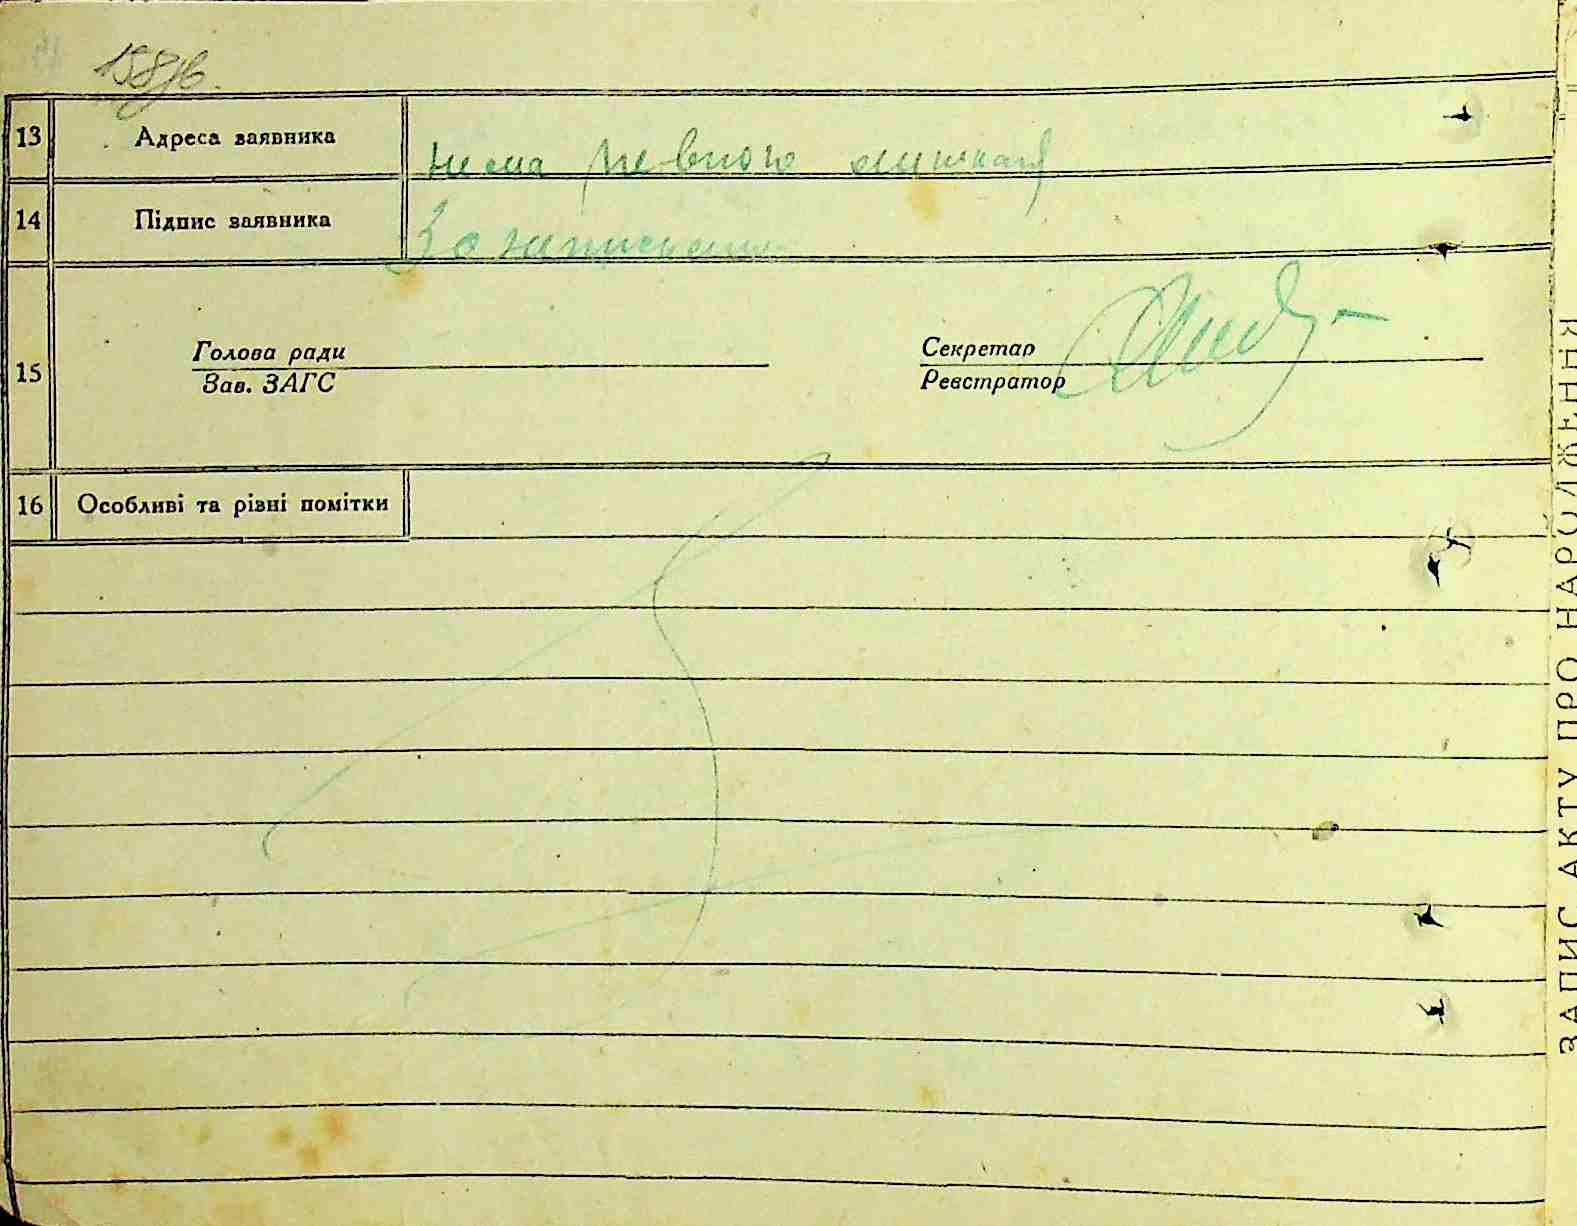 158зв.
13 Адреса заявника нема певного мешкая
14 Підпис заявника За
15 Голова ради Секретар
Зав. ЗАГС Реєстратор
16 Особливі та різні помітки
ЗАПИС АКТУ ПРО НАРОДЖЕННЯ